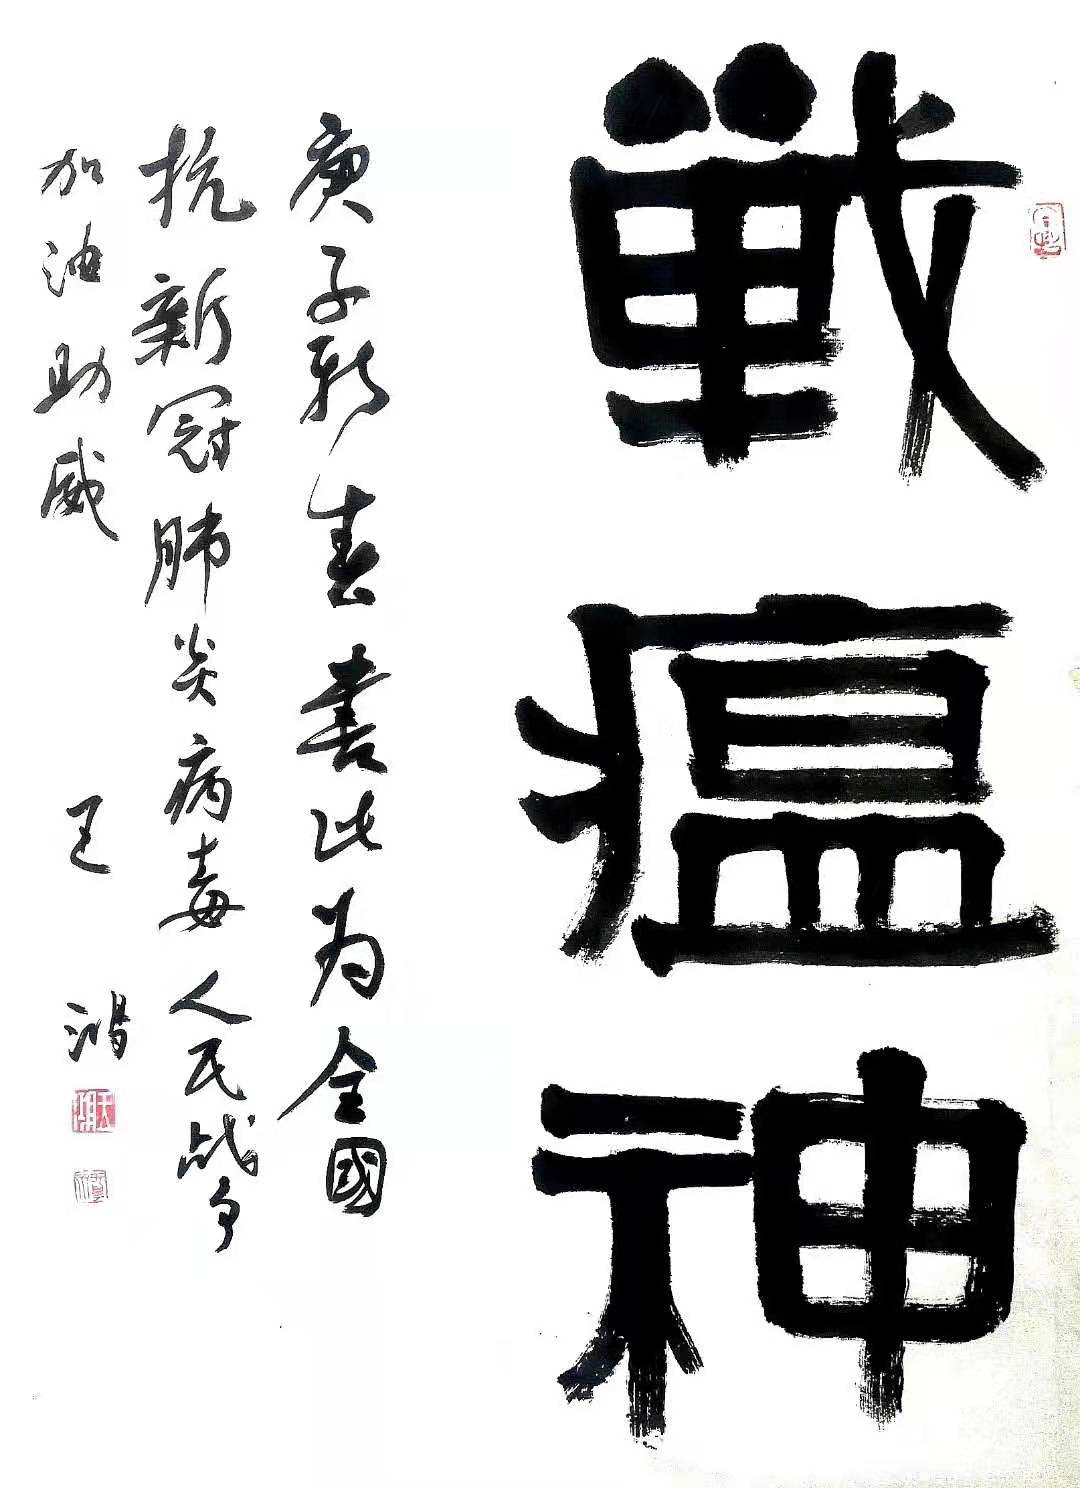 戰瘟神
庚子新春書此为全國
抗新冠肺炎病毒人民战争
加油助威
王鸿